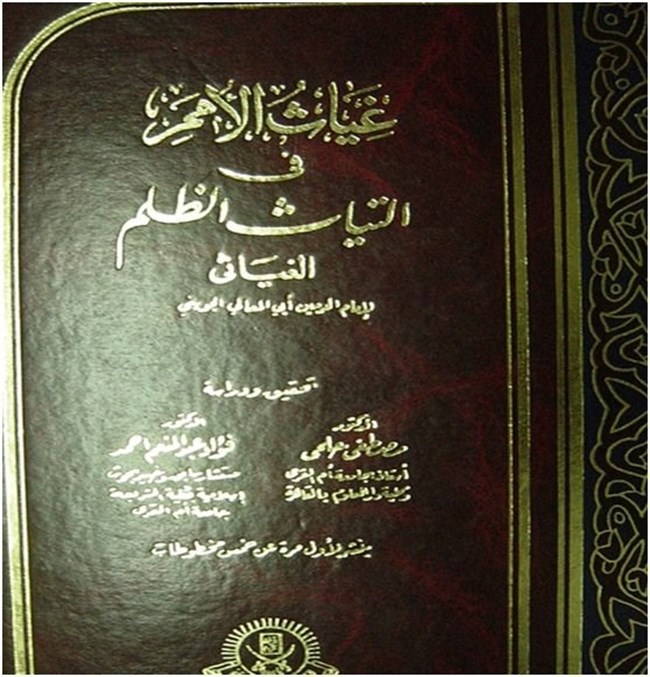 غياث الأمم
في
التياث الظلم
الغياثي
لإمام الحرمين أبي المعالي الجويني
تحقيق ودراسة
الدكتور
مصطفى حلمي
أستاذ بجامعة أم القرى
وكلية دار العلوم بالقاهرة
الدكتور
فؤاد عبد المنعم أحمد
مستشار
بكلية الشريعة
جامعة أم القرى
ينشر لأول مرة عن خمس مخطوطات